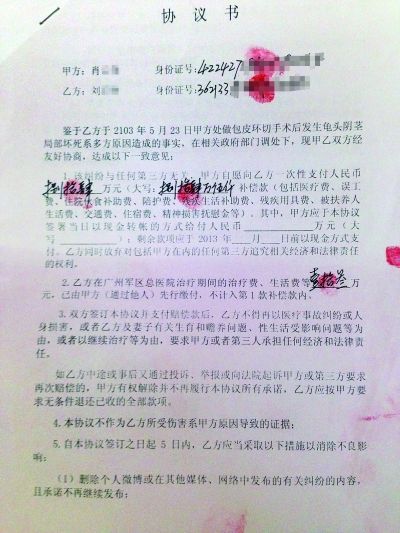 协 议 书
甲方：肖 身份证号：422427
乙方：刘 身份证号：362133
鉴于乙方于 2103 年 5 月 23 日甲方处做包皮环切手术后发生龟头阴茎
局部坏死系多方原因造成的事实，在相关政府部门调处下，现甲乙双方经
友好协商，达成以下一致意见：
1.该纠纷与任何第三方无关，甲方自愿向乙方一次性支付人民币
捌拾肆 万元（大写：捌拾肆万 补偿款（包括医疗费、误工
费、住院伙食补助费、陪护费、残疾生活补助费、残疾用具费、被扶养人
生活费、交通费、住宿费、精神损害抚慰金等）。其中，甲方应于本协议
签署当日以现金转帐的方式给付人民币 万元（大
写 ）；剩余款项应于 2013 年 月 日前以现金方式支
付。乙方同时放弃可包括甲方在内的任何第三方追究相关经济和法律责任
的权利。
2.乙方在广州军区总医院治疗期间的治疗费、生活费等 壹拾叁 万
元，已由甲方（通过他人）先行缴付，不计入第 1 款补偿款内。
3.双方签订本协议并支付赔偿款后，乙方不得再以医疗事故纠纷或人
身损害，或者乙方及妻子有关生育和赡养问题、性生活受影响问题等为
由，或者以继续治疗等为由，要求甲方或者第三人承担任何经济和法律责
任。
如乙方中途或事后又通过投诉、举报或向法院起诉甲方或第三方要求
再次赔偿的，甲方有权解除并不再履行本协议所有承诺，乙方应按甲方要
求无条件退还已收的全部款项。
4.本协议不作为乙方所受伤害系甲方原因导致的证据；
5.自本协议签订之日起 5 日内，乙方应当采取以下措施以消除不良影
响：
（1）删除个人微博或在其他媒体、网络中发布的有关纠纷的内容，
且承诺不再继续发布；